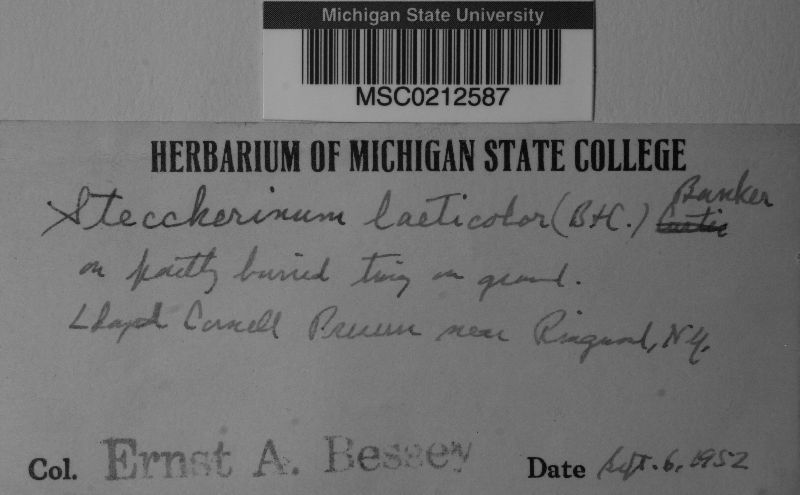 Michigan State University
MSC0212587
HERBARIUM OF MICHIGAN STATE COLLEGE
Steccherinum laeticolor (B+C.) Banker
on partly buried twig on ground.
Lloyd Cornell Preserve near Ringwood, N.Y.
Col. Ernst A. Bessey Date Sept. 6, 1952